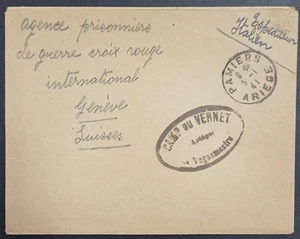 agence prisonniers
de guerre croix rouge
international
Genève
Suisses
Expéditeur
Italien
PAMIERS
ARIEGE
CAMP DU VERNET
Vaguemestre